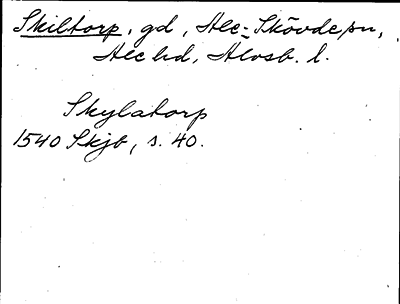 Skiltorp, gd, Ale-Skövde sn,
Ale hd, Älvsb. l.
Skylatorp
1540 Skjb, s. 40.